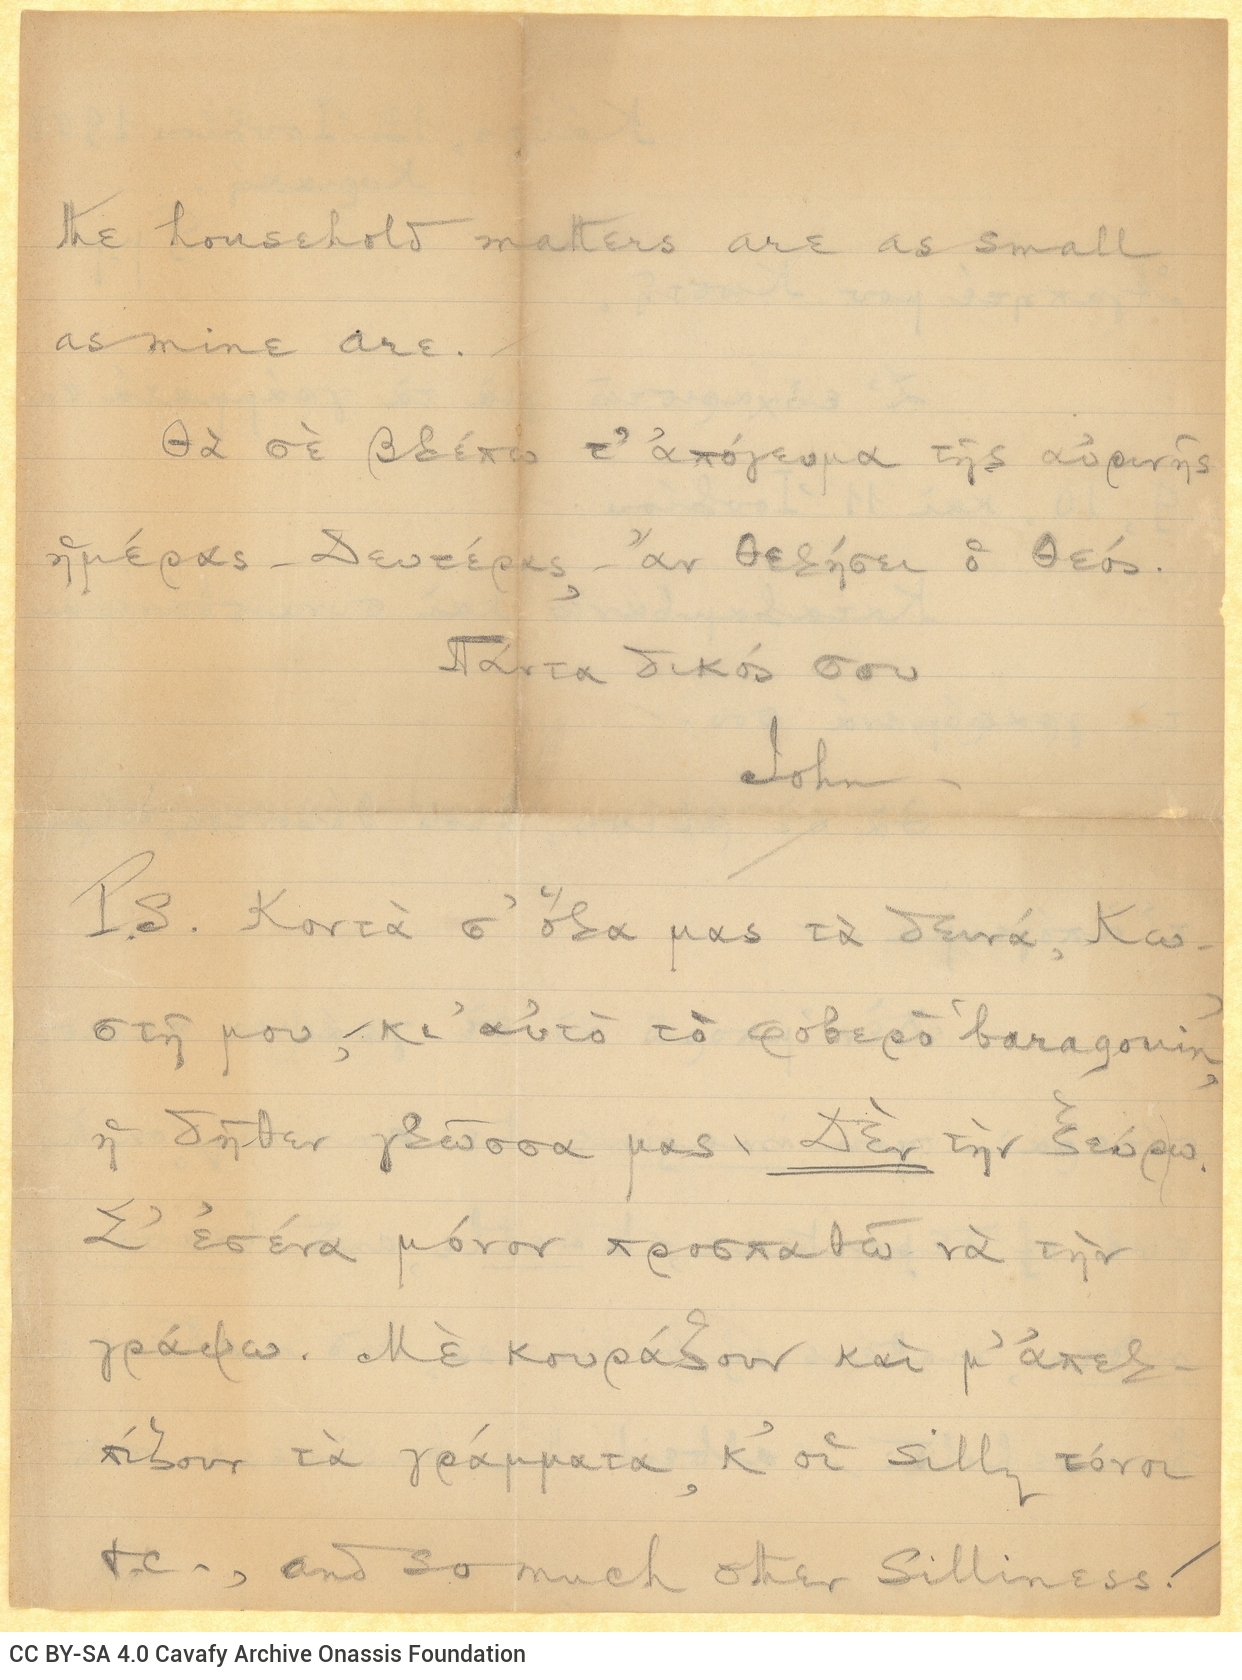 the household matters are as small
as mine are.
Θὰ σὲ βλέπω τ' ἀπόγευμα τῆς αὐρινῆς
ἡμέρας – Δευτέρας, – ἂν θελήσει ὁ Θεός.
Πάντα δικός σου
John
P.S. Κοντὰ σ' ὅλα μας τὰ δεινά, Κω-
στῆ μου, κι' αὐτὸ τὸ φοβερὸ 'baragouin',
ἡ δῆθεν γλῶσσα μας. Δὲν τὴν ξεύρω.
Σ' ἐσένα μόνον προσπαθῶ νὰ τὴν
γράψω. Μὲ κουράζουν καὶ μ' ἀπελ-
πίζουν τὰ γράμματα, κ' οἱ silly τόνοι
&.c., and so much other silliness!
CC BY-SA 4.0 Cavafy Archive Onassis Foundation